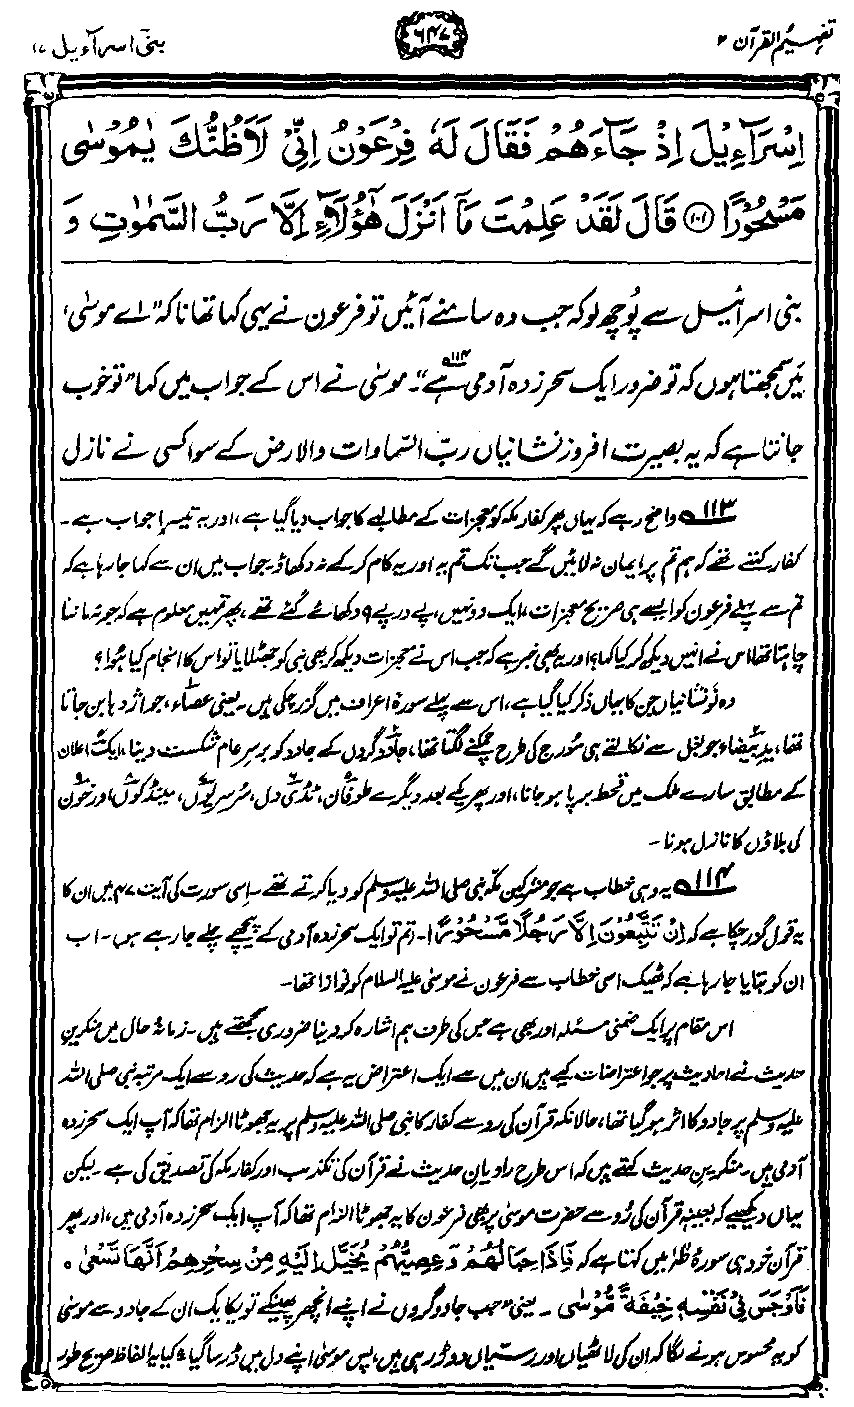 تفہیم القرآن ۲
۶۴۷
بنی اسرآءیل ۱۷
اِسْرَآءِيْلَ اِذْ جَآءَهُمْ فَقَالَ لَهٗ فِرْعَوْنُ اِنِّيْ لَاَظُنُّكَ يٰمُوْسٰى
مَسْحُوْرًا ﴿۱۰۱﴾ قَالَ لَقَدْ عَلِمْتَ مَآ اَنْزَلَ هٰٓؤُلَآءِ اِلَّا رَبُّ السَّمٰوٰتِ وَ
بنی اسرائیل سے پُوچھ لو کہ جب وہ سامنے آئیں تو فرعون نے یہی کہا تھا نا کہ ”اے موسیٰ،
میں سمجھتا ہوں کہ تو ضرور ایک سحرزدہ آدمی ہے۱۱۴“۔ موسیٰ نے اس کے جواب میں کہا ”تو خوب
جانتا ہے کہ یہ بصیرت افروز نشانیاں ربّ السّماوات والارض کے سوا کسی نے نازل
۱۱۳ واضح رہے کہ یہاں پھر کفار مکہ کو معجزات کے مطالبے کا جواب دیا گیا ہے، اور یہ تیسرا جواب ہے۔
کفار کہتے تھے کہ ہم تم پر ایمان نہ لائیں گے جب تک تم یہ اور یہ کام کر کے نہ دکھاؤ۔ جواب میں ان سے کہا جا رہا ہے کہ
تم سے پہلے فرعون کو ایسے ہی صریح معجزات، ایک دو نہیں، پے در پے ۹ دکھائے گئے تھے، پھر تمہیں معلوم ہے کہ جو نہ ماننا
چاہتا تھا اس نے انہیں دیکھ کر کیا کہا؟ اور یہ بھی خبر ہے کہ جب اس نے معجزات دیکھ کر بھی نبی کو جھٹلایا تو اس کا انجام کیا ہوا؟
وہ نَو نشانیاں جن کا یہاں ذکر کیا گیا ہے، اس سے پہلے سورۂ اعراف میں گزر چکی ہیں۔ یعنی عصاء، جو اژدہا بن جاتا
تھا، یدِ بیضاء جو بغل سے نکالتے ہی سُورج کی طرح چمکنے لگتا تھا، جادوگروں کے جادو کو برسرِ عام شکست دینا، ایک اعلان
کے مطابق سارے ملک میں قحط برپا ہو جانا، اور پھر یکے بعد دیگرے طوفان، ٹڈی دل، سُرسریوں، مینڈکوں اور خون
کی بلاؤں کا نازل ہونا۔
۱۱۴ یہ وہی خطاب ہے جو مشرکین مکہ نبی صلی اللہ علیہ وسلم کو دیا کرتے تھے۔ اِسی سورت کی آیت ۴۷ میں ان کا
یہ قول گزر چکا ہے کہ اِنْ تَتَّبِعُوْنَ اِلَّا رَجُلًا مَّسْحُوْرًا۔ (تم تو ایک سحرزدہ آدمی کے پیچھے چلے جا رہے ہو)۔ اب
ان کو بتایا جا رہا ہے کہ ٹھیک اسی خطاب سے فرعون نے موسیٰ علیہ السلام کو نوازا تھا۔
اس مقام پر ایک ضمنی مسئلہ اور بھی ہے جس کی طرف ہم اشارہ کر دینا ضروری سمجھتے ہیں۔ زمانۂ حال میں منکرین
حدیث نے احادیث پر جو اعتراضات کیے ہیں ان میں سے ایک اعتراض یہ ہے کہ حدیث کی رو سے ایک مرتبہ نبی صلی اللہ
علیہ وسلم پر جادو کا اثر ہو گیا تھا، حالانکہ قرآن کی رو سے کفار کا نبی صلی اللہ علیہ وسلم پر یہ جھوٹا الزام تھا کہ آپ ایک سحرزدہ
آدمی ہیں۔ منکرینِ حدیث کہتے ہیں کہ اس طرح راویانِ حدیث نے قرآن کی تکذیب اور کفار مکہ کی تصدیق کی ہے۔ لیکن
یہاں دیکھیے کہ بعینہٖ قرآن کی رُو سے حضرت موسیٰ پر بھی فرعون کا یہ جھوٹا الزام تھا کہ آپ ایک سحرزدہ آدمی ہیں، اور پھر
قرآن خود ہی سورۂ طٰہٰ میں کہتا ہے کہ فَاِذَا حِبَالُهُمْ وَعِصِيُّهُمْ يُخَيَّلُ اِلَيْهِ مِنْ سِحْرِهِمْ اَنَّهَا تَسْعٰى ۰
فَاَوْجَسَ فِيْ نَفْسِهٖ خِيْفَةً مُّوْسٰى ۔ یعنی ”جب جادوگروں نے اپنے انچھر پھینکے تو یکایک ان کے جادو سے موسیٰ
کو یہ محسوس ہونے لگا کہ ان کی لاٹھیاں اور رسّیاں دوڑ رہی ہیں، پس موسیٰ اپنے دل میں ڈر سا گیا“ کیا یہ الفاظ صریح طور